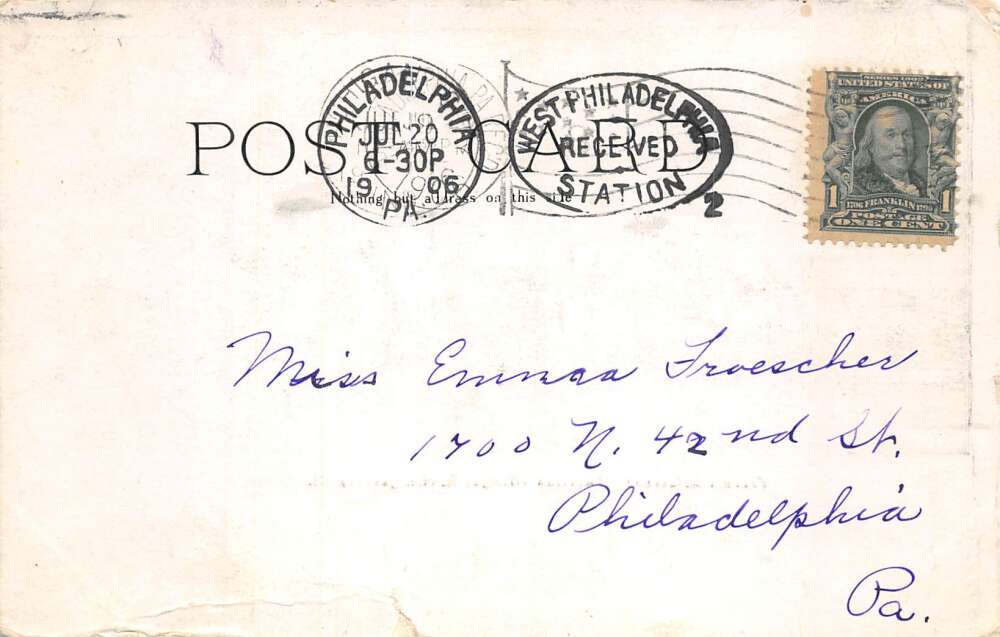 POST CARD
Nothing but address on this side
PHILADELPHIA
JUL 20
6-30P
19 06
PA.
WEST PHILADELPHIA
RECEIVED
STATION
2
SERIES 1902
UNITED STATES OF
AMERICA
1706 FRANKLIN 1790
1 1
POSTAGE
ONE CENT
Miss Emmaa Froescher
1700 N. 42nd St.
Philadelphia
Pa.